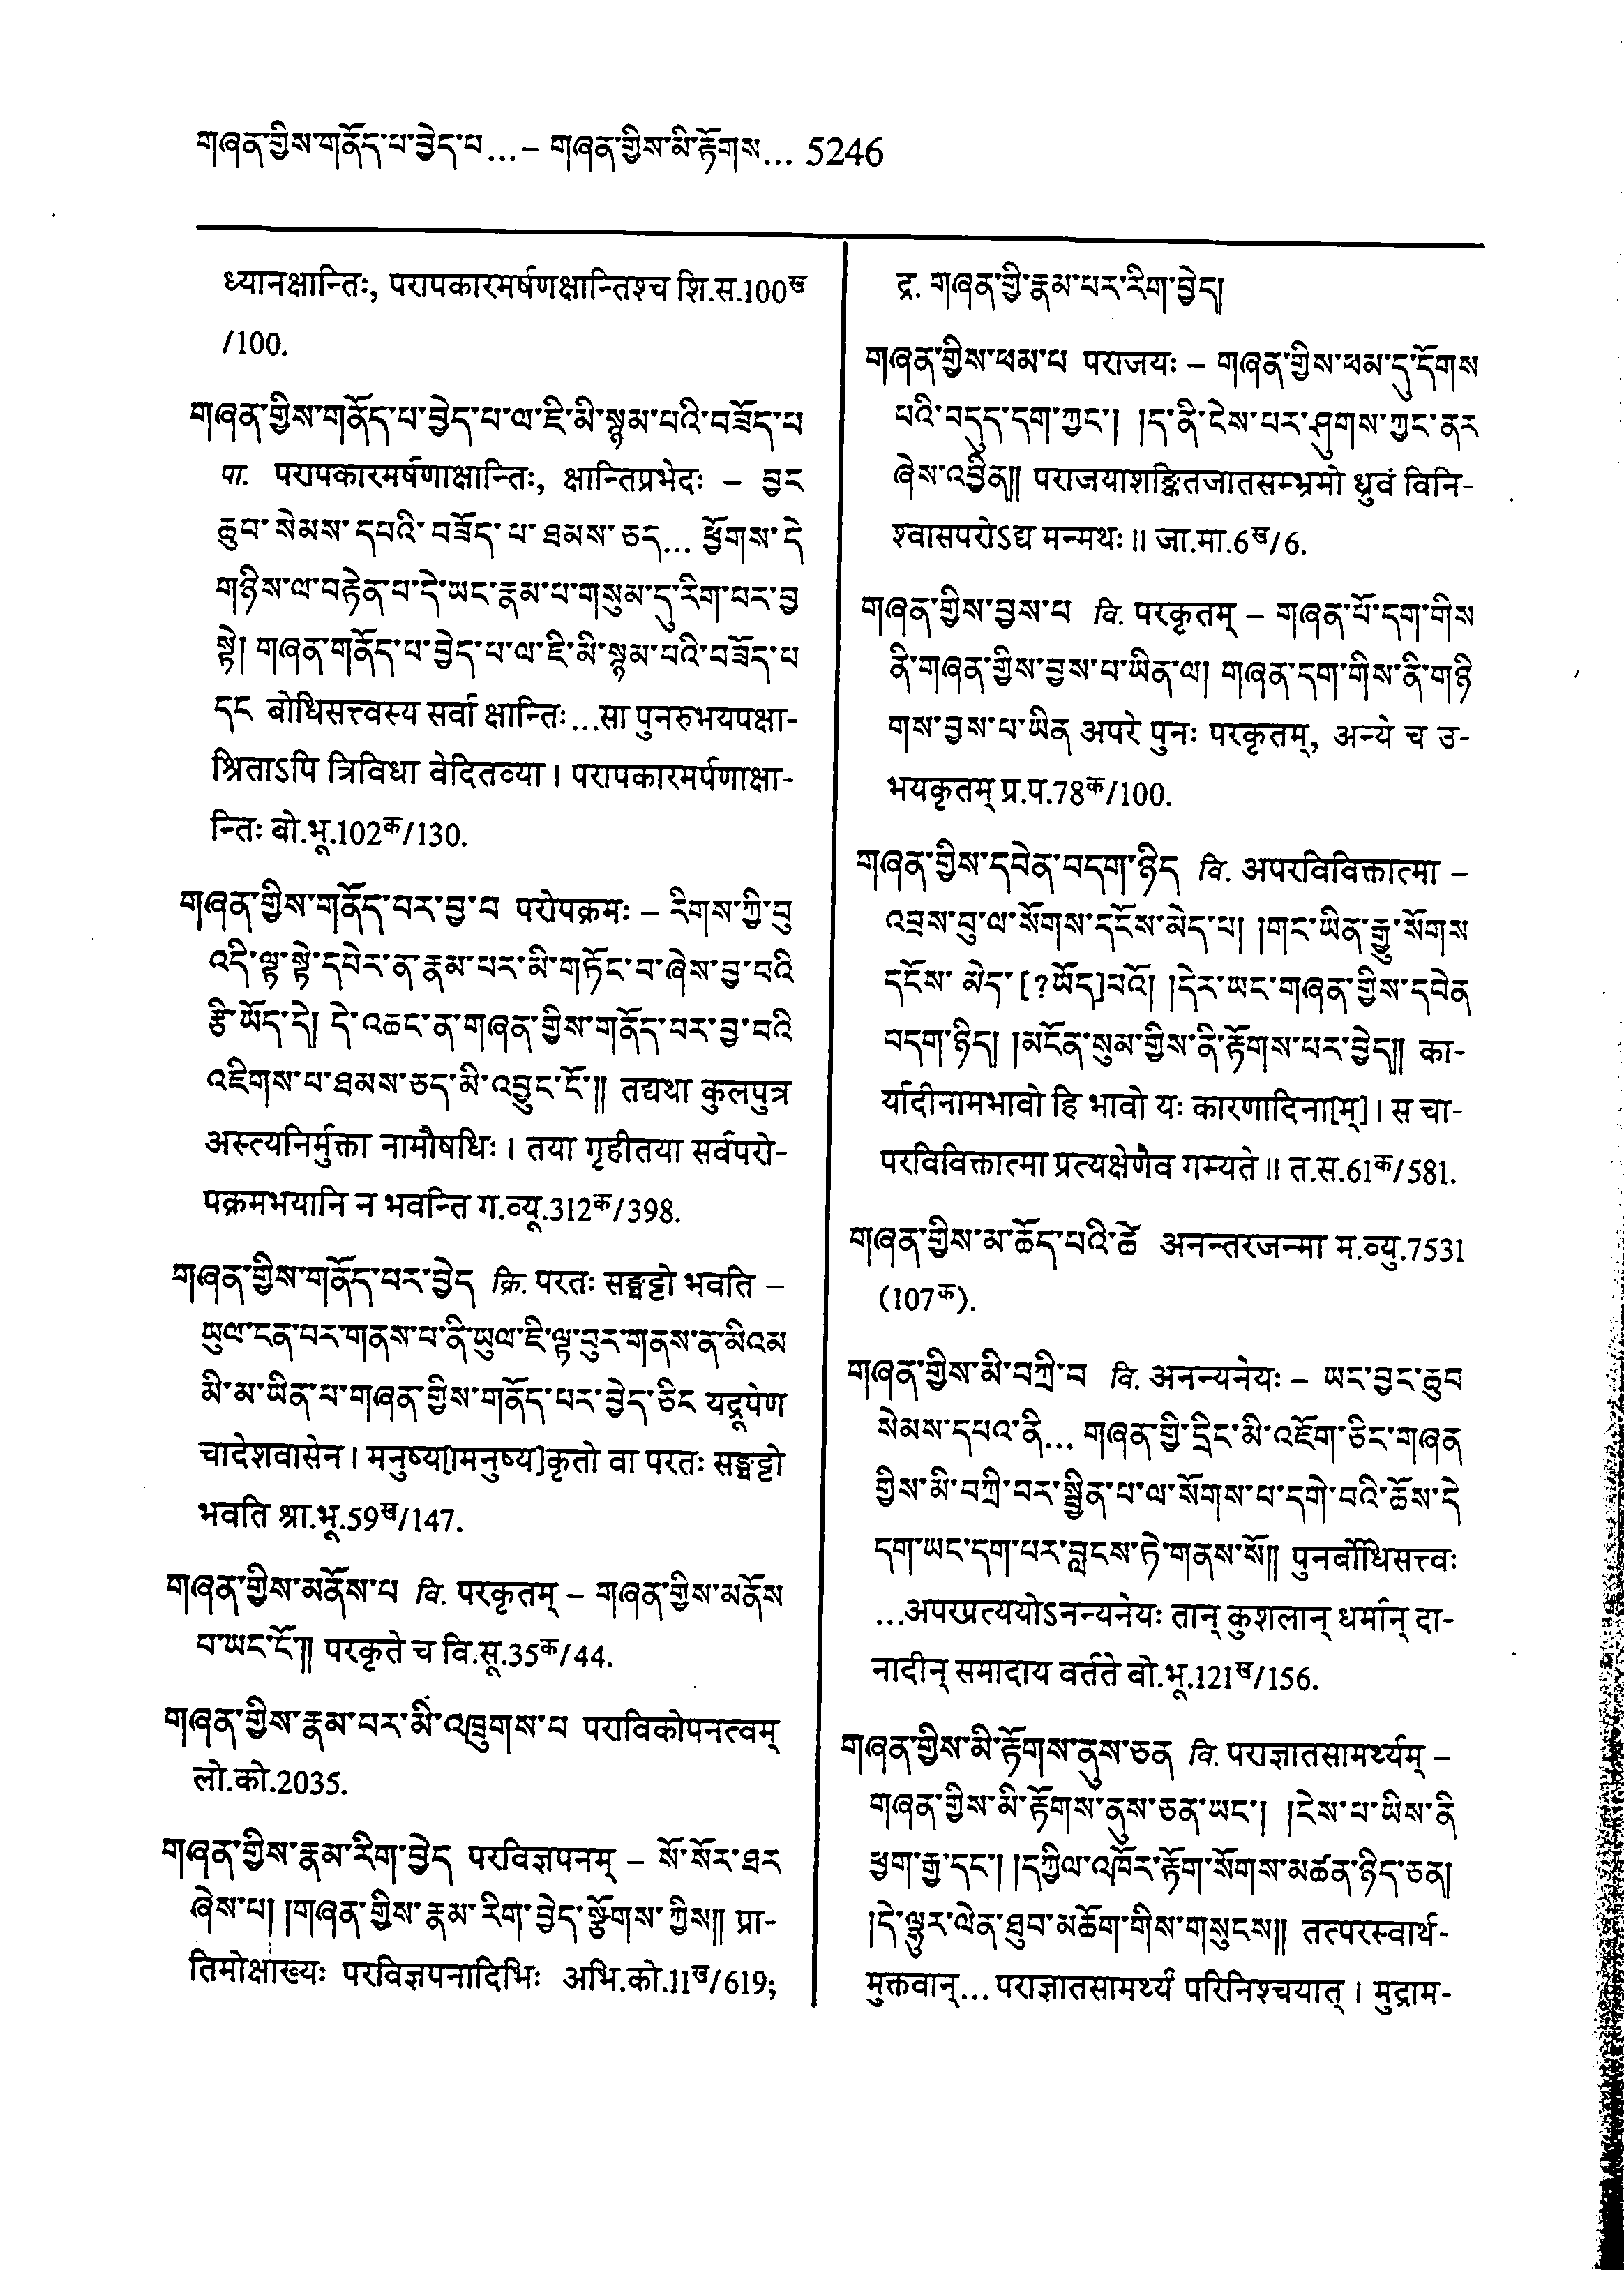 གཞན་གྱིས་གནོད་པ་བྱེད་པ...– གཞན་གྱིས་མི་རྟོགས... 5246
ध्यानक्षान्तिः, परापकारमर्षणक्षान्तिश्च शि.स.100ख
/100.
གཞན་གྱིས་གནོད་པ་བྱེད་པ་ལ་ཇི་མི་སྙམ་པའི་བཟོད་པ
पा. परापकारमर्षणाक्षान्तिः, क्षान्तिप्रभेदः – བྱང
ཆུབ་སེམས་དཔའི་བཟོད་པ་ཐམས་ཅད... ཕྱོགས་དེ
གཉིས་ལ་བརྟེན་པ་དེ་ཡང་རྣམ་པ་གསུམ་དུ་རིག་པར་བྱ
སྟེ། གཞན་གནོད་པ་བྱེད་པ་ལ་ཇི་མི་སྙམ་པའི་བཟོད་པ
དང बोधिसत्त्वस्य सर्वा क्षान्तिः...सा पुनरुभयपक्षा-
श्रिताऽपि त्रिविधा वेदितव्या । परापकारमर्पणाक्षा-
न्तिः बो.भू.102क/130.
གཞན་གྱིས་གནོད་པར་བྱ་བ परोपक्रमः – རིགས་ཀྱི་བུ
འདི་ལྟ་སྟེ་དཔེར་ན་རྣམ་པར་མི་གཏོང་བ་ཞེས་བྱ་བའི
རྩི་ཡོད་དེ། དེ་འཆང་ན་གཞན་གྱིས་གནོད་པར་བྱ་བའི
འཇིགས་པ་ཐམས་ཅད་མི་འབྱུང་ངོ་།། तद्यथा कुलपुत्र
अस्त्यनिर्मुक्ता नामौषधिः । तया गृहीतया सर्वपरो-
पक्रमभयानि न भवन्ति ग.व्यू.312क/398.
གཞན་གྱིས་གནོད་པར་བྱེད क्रि. परतः सङ्घट्टो भवति –
ཡུལ་ངན་པར་གནས་པ་ནི་ཡུལ་ཇི་ལྟ་བུར་གནས་ན་མིའམ
མི་མ་ཡིན་པ་གཞན་གྱིས་གནོད་པར་བྱེད་ཅིང यद्रूपेण
चादेशवासेन । मनुष्य[ामनुष्य]कृतो वा परतः सङ्घट्टो
भवति श्रा.भू.59ख/147.
གཞན་གྱིས་མནོས་པ वि. परकृतम् – གཞན་གྱིས་མནོས
བ་ཡང་ངོ་།། परकृते च वि.सू.35क/44.
གཞན་གྱིས་རྣམ་པར་མི་འཁྲུགས་པ पराविकोपनत्वम्
लो.को.2035.
གཞན་གྱིས་རྣམ་རིག་བྱེད परविज्ञपनम् – སོ་སོར་ཐར
ཞེས་པ། །གཞན་གྱིས་རྣམ་རིག་བྱེད་སྩོགས་ཀྱིས།། प्रा-
तिमोक्षाख्यः परविज्ञपनादिभिः अभि.को.11ख/619;
द्र. གཞན་གྱི་རྣམ་པར་རིག་བྱེད།
གཞན་གྱིས་ཕམ་པ पराजयः – གཞན་གྱིས་ཕམ་དུ་དོགས
པའི་བདུད་དག་ཀྱང་། །ད་ནི་ངེས་པར་ཤུགས་ཀྱང་ནར
ཞེས་འབྱིན།། पराजयाशङ्कितजातसम्भ्रमो ध्रुवं विनि-
श्वासपरोऽद्य मन्मथः ॥ जा.मा.6ख/6.
གཞན་གྱིས་བྱས་པ वि. परकृतम् – གཞན་པོ་དག་གིས
ནི་གཞན་གྱིས་བྱས་པ་ཡིན་ལ། གཞན་དག་གིས་ནི་གཉི
གས་བྱས་པ་ཡིན अपरे पुनः परकृतम्, अन्ये च उ-
भयकृतम् प्र.प.78क/100.
གཞན་གྱིས་དབེན་བདག་ཉིད वि. अपरविविक्तात्मा –
འབྲས་བུ་ལ་སོགས་དངོས་མེད་པ། །གང་ཡིན་རྒྱུ་སོགས
དངོས་མེད་[?ཡོད]པའོ། །དེར་ཡང་གཞན་གྱིས་དབེན
བདག་ཉིད། །མངོན་སུམ་གྱིས་ནི་རྟོགས་པར་བྱེད།། का-
र्यादीनामभावो हि भावो यः कारणादिना[म्] । स चा-
परविविक्तात्मा प्रत्यक्षेणैव गम्यते ॥ त.स.61क/581.
གཞན་གྱིས་མ་ཆོད་པའི་ཚེ अनन्तरजन्मा म.व्यु.7531
(107क).
གཞན་གྱིས་མི་བཀྲི་བ वि. अनन्यनेयः – ཡང་བྱང་ཆུབ
སེམས་དཔའ་ནི... གཞན་གྱི་དྲིང་མི་འཇོག་ཅིང་གཞན
གྱིས་མི་བཀྲི་བར་སྦྱིན་པ་ལ་སོགས་པ་དགེ་བའི་ཆོས་དེ
དག་ཡང་དག་པར་བླངས་ཏེ་གནས་སོ།། पुनर्बोधिसत्त्वः
...अपरप्रत्ययोऽनन्यनेयः तान् कुशलान् धर्मान् दा-
नादीन् समादाय वर्तते बो.भू.121ख/156.
གཞན་གྱིས་མི་རྟོགས་ནུས་ཅན वि. पराज्ञातसामर्थ्यम् –
གཞན་གྱིས་མི་རྟོགས་ནུས་ཅན་ཡང་། །ངེས་པ་ཡིས་ནི
ཕྱག་རྒྱ་དང་། །དཀྱིལ་འཁོར་རྟོག་སོགས་མཚན་ཉིད་ཅན།
།དེ་ལྷུར་ལེན་ཐུབ་མཆོག་གིས་གསུངས།། तत्परस्वार्थ-
मुक्तवान्... पराज्ञातसामर्थ्यं परिनिश्चयात् । मुद्राम-